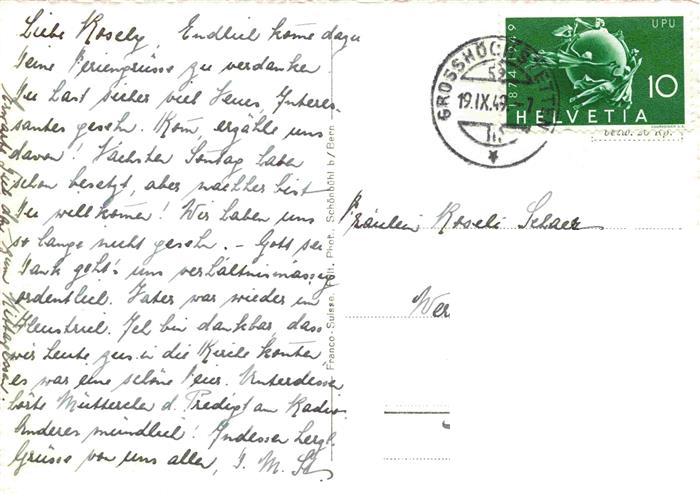 Liebe Rosely, Endlich kome dazu
Deine Feriengrüsse zu verdanken
Du hast sicher viel Neues, Interes-
santes gesehn. Kom, erzähle uns
davon! Nächster Sontag habe
schon besetzt, aber nachher bist
Du willkomen! Wir haben uns
so lange nicht gesehn. – Gott sei
Dank geht's uns verhältnismässig
ordentlich. Vater war wieder im
Ich bin dankbar, dass
wir heute zus. in die Kirche konten
es war eine schöne Feier. Unterdessen
hörte Mütterchen d. Predigt am Radio.
Anderes mündlich! Indessen herzl.
Grüsse von uns allen, J. M. St.
zum Mittagessen.
Franco-Suisse, Edit. Phot., Schönbühl b/Bern
GROSSHÖCHSTETTEN
19.IX.49.-7
1874
1949
UPU
10
HELVETIA
Fräulein Roseli Schaer
Wer